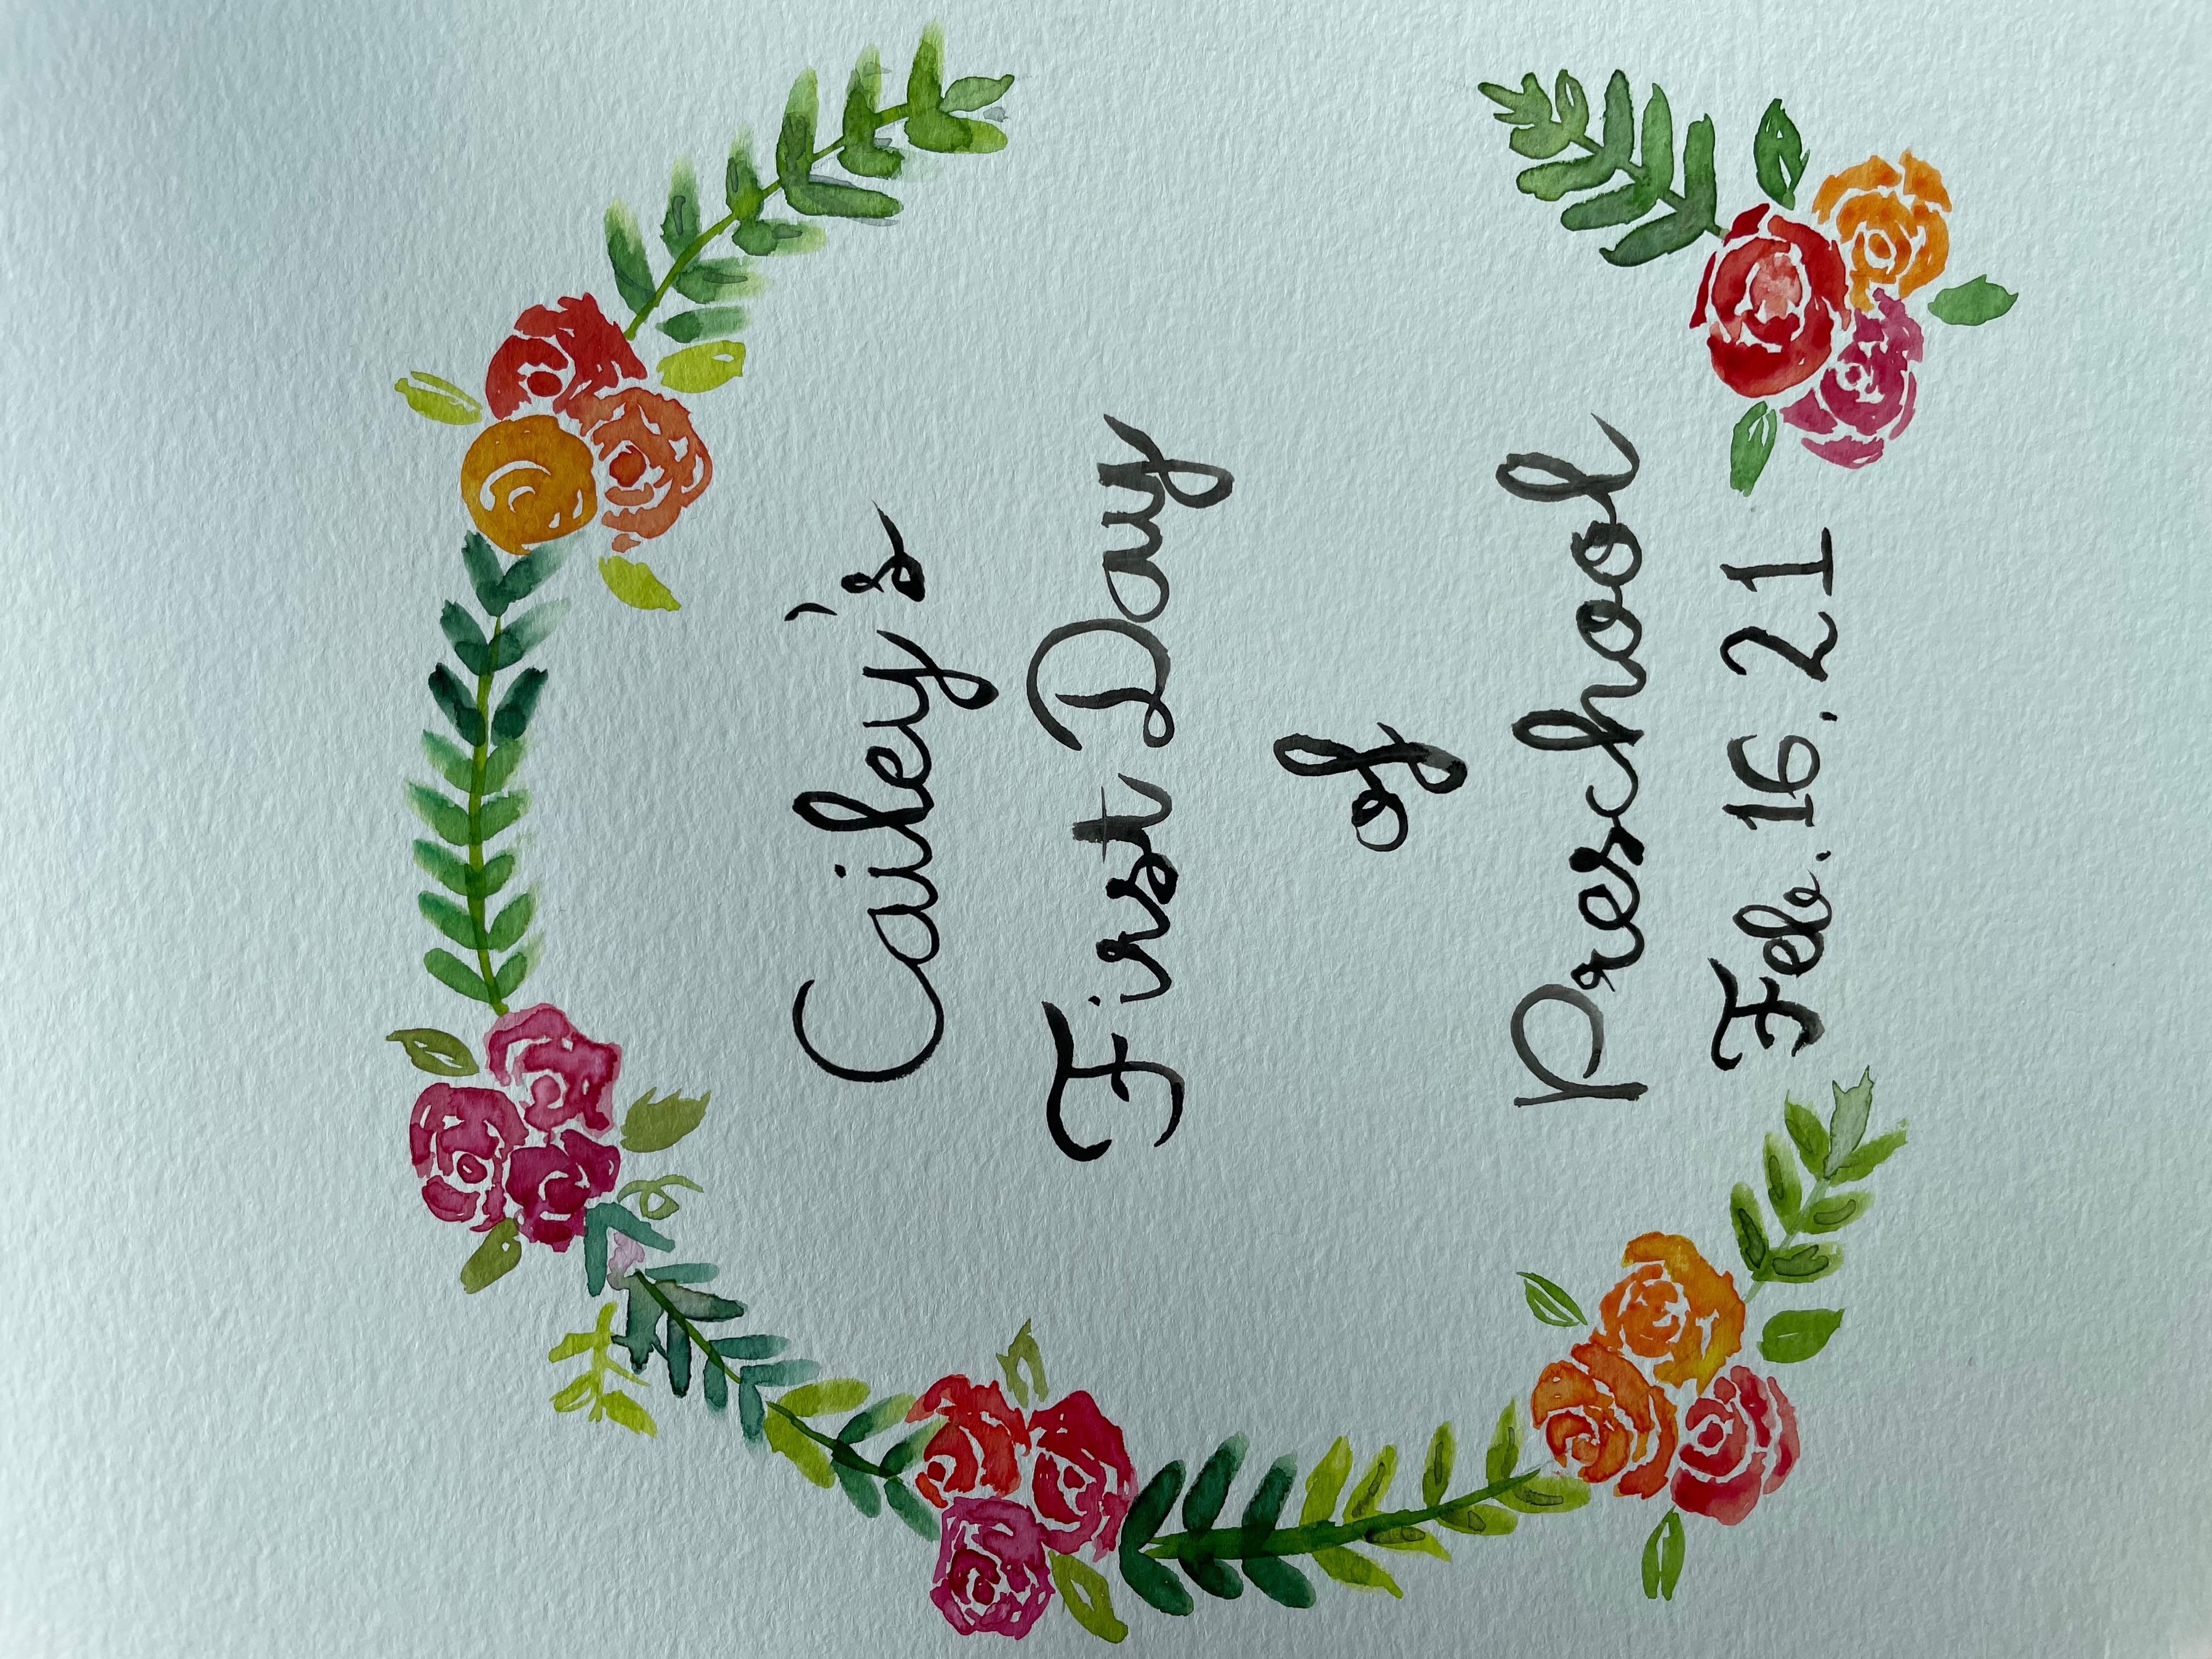 Cailey's
First Day
of
Preschool
Feb. 16. 21